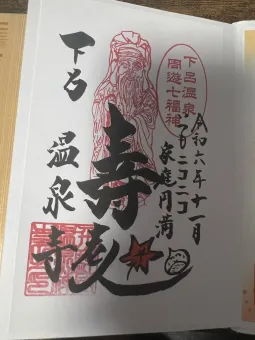 令和六年十一月
ニコニコ
家庭円満
下呂温泉
周遊七福神
寿老人
下呂
温泉寺